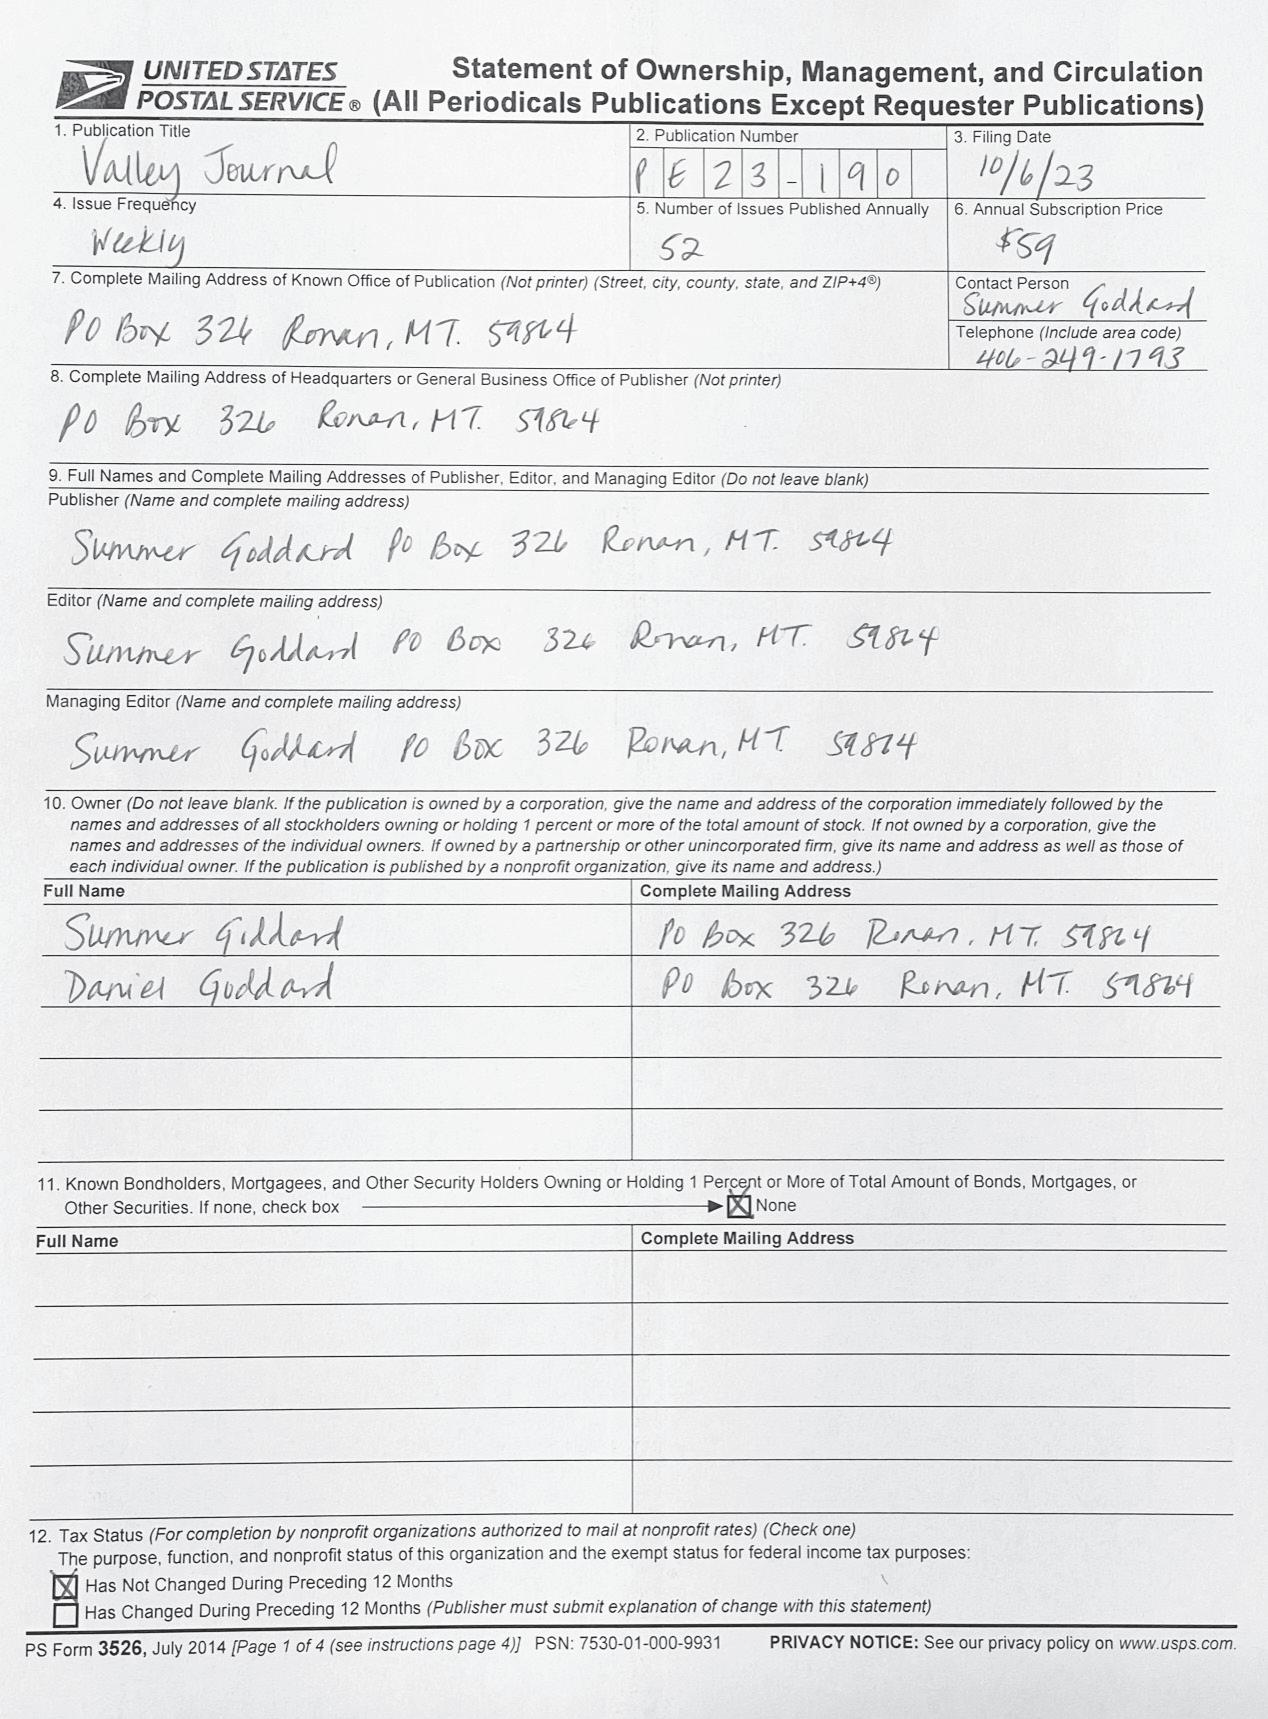 UNITED STATES
POSTAL SERVICE ®
Statement of Ownership, Management, and Circulation
(All Periodicals Publications Except Requester Publications)
1. Publication Title
Valley Journal
2. Publication Number
PE23-190
3. Filing Date
10/6/23
4. Issue Frequency
Weekly
5. Number of Issues Published Annually
52
6. Annual Subscription Price
$59
7. Complete Mailing Address of Known Office of Publication (Not printer) (Street, city, county, state, and ZIP+4®)
PO Box 326 Ronan, MT. 59864
Contact Person
Summer Goddard
Telephone (Include area code)
406-249-1793
8. Complete Mailing Address of Headquarters or General Business Office of Publisher (Not printer)
PO Box 326 Ronan, MT. 59864
9. Full Names and Complete Mailing Addresses of Publisher, Editor, and Managing Editor (Do not leave blank)
Publisher (Name and complete mailing address)
Summer Goddard PO Box 326 Ronan, MT. 59864
Editor (Name and complete mailing address)
Summer Goddard PO Box 326 Ronan, MT. 59864
Managing Editor (Name and complete mailing address)
Summer Goddard PO Box 326 Ronan, MT 59864
10. Owner (Do not leave blank. If the publication is owned by a corporation, give the name and address of the corporation immediately followed by the
names and addresses of all stockholders owning or holding 1 percent or more of the total amount of stock. If not owned by a corporation, give the
names and addresses of the individual owners. If owned by a partnership or other unincorporated firm, give its name and address as well as those of
each individual owner. If the publication is published by a nonprofit organization, give its name and address.)
Full Name
Complete Mailing Address
Summer Goddard
PO Box 326 Ronan, MT. 59864
Daniel Goddard
PO Box 326 Ronan, MT. 59864
11. Known Bondholders, Mortgagees, and Other Security Holders Owning or Holding 1 Percent or More of Total Amount of Bonds, Mortgages, or
Other Securities. If none, check box
None
Full Name
Complete Mailing Address
12. Tax Status (For completion by nonprofit organizations authorized to mail at nonprofit rates) (Check one)
The purpose, function, and nonprofit status of this organization and the exempt status for federal income tax purposes:
Has Not Changed During Preceding 12 Months
Has Changed During Preceding 12 Months (Publisher must submit explanation of change with this statement)
PS Form 3526, July 2014 [Page 1 of 4 (see instructions page 4)] PSN: 7530-01-000-9931
PRIVACY NOTICE: See our privacy policy on www.usps.com.